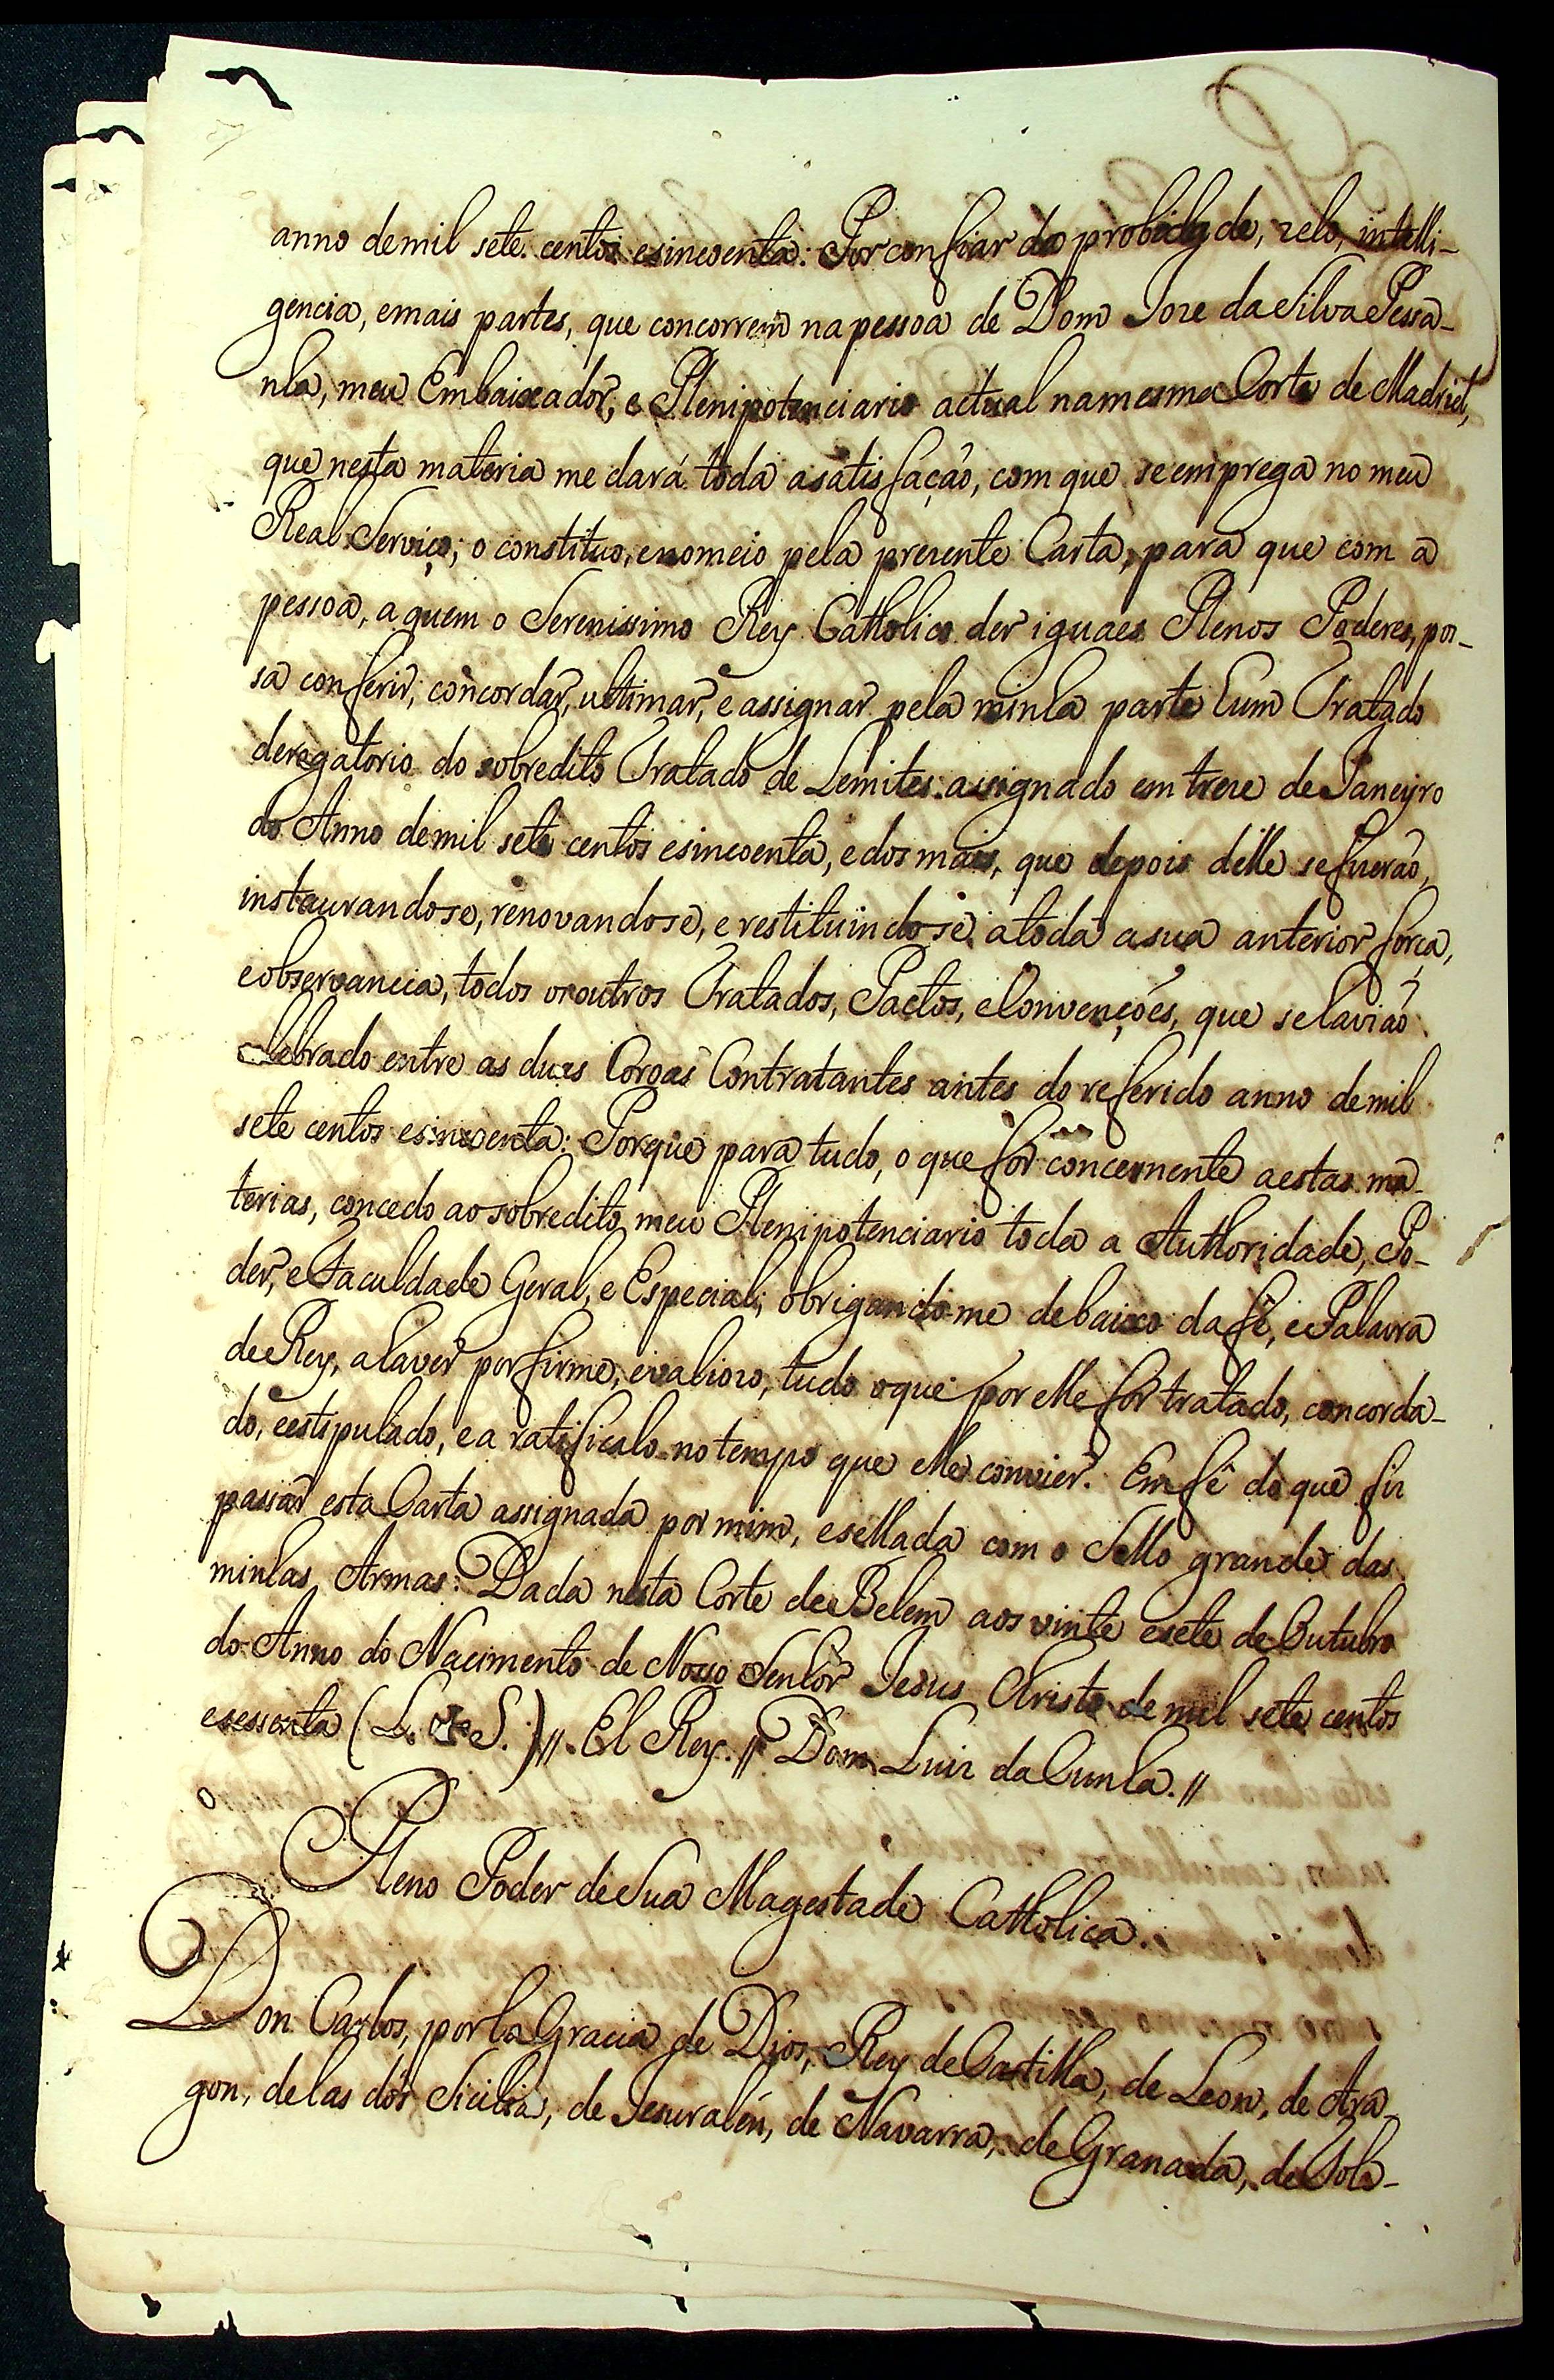 anno demil sete centos esincoenta: Por confiar da probidade, zelo, intelli-
gencia, emais partes, que concorrem napessoa de Dom Joze daSilvaPessa-
nha, meu Embaixador, e Plenipotenciario actual namesma Corte de Madrid,
que nesta materia me dará toda asatisfação, com que seemprega no meu
Real Serviço; o constituo, enomeio pela prezente Carta, para que com a
pessoa, aquem o Serenissimo Rey Catholico der iguaes Plenos Poderes, pos-
sa conferir, concordar, ultimar, e assignar pela minha parte hum Tratado
deregatorio do sobredito Tratado de Lemites assignado em treze de Janeyro
do Anno demil sete centos esincoenta, edosmais, que depois delle sefizerão,
instaurandose, renovandose, e restituindose atoda asua anterior força,
eobservancia, todos osoutros Tratados, Pactos, eConvenções, que sehavião
celebrado entre as duas Coroas Contratantes antes do referido anno demil
sete centos esincoenta: Porque para tudo, oque for concernente aestas ma-
terias, concedo aosobredito meu Plenipotenciario toda a Authoridade, Po-
der, eFaculdade Geral, e Especial; obrigandome debaixo dafé, ePalavra
deRey, ahaver porfirme, evaliozo, tudo oque por elle for tratado, concorda-
do, eestipulado, ea ratificalo notempo que elle convier. Emfé do que fiz
passar esta Carta assignada pormim, esellada com o Sello grande das
minhas Armas: Dada nesta Corte deBelem aos vinte esete de Outubro
do Anno do Nacimento de Nosso Senhor Jesus Christo de mil sete centos
esessenta (L. ✠ S.) // El Rey. // Dom Luiz daCunha. //
Pleno Poder deSua Magestade Catholica.
Don Carlos, porla Gracia de Dios, Rey deCastilla, de Leon, de Ara-
gon, delas dos Sicilias, de Jesuralén, de Navarra, deGranada, deTole-